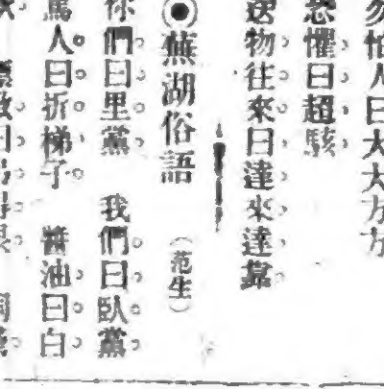 勿怕人曰大大方方
恐懼曰超駭。
送物往來曰達來達靠。
◉蕪湖俗語 (范生)
你們曰里黨。 我們曰臥黨。
罵人曰折梯子。 醬油曰白